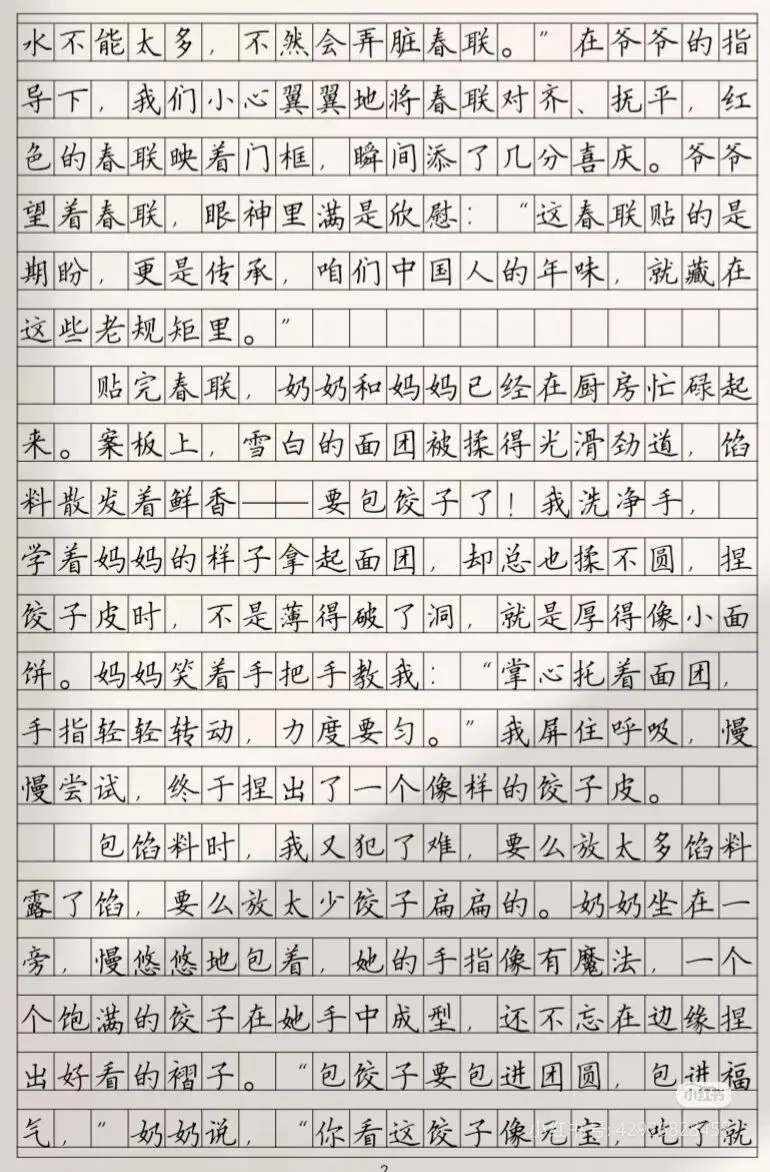 水不能太多，不然会弄脏春联。”在爷爷的指
导下，我们小心翼翼地将春联对齐、抚平，红
色的春联映着门框，瞬间添了几分喜庆。爷爷
望着春联，眼神里满是欣慰：“这春联贴的是
期盼，更是传承，咱们中国人的年味，就藏在
这些老规矩里。”
贴完春联，奶奶和妈妈已经在厨房忙碌起
来。案板上，雪白的面团被揉得光滑劲道，馅
料散发着鲜香——要包饺子了！我洗净手，
学着妈妈的样子拿起面团，却总也揉不圆，捏
饺子皮时，不是薄得破了洞，就是厚得像小面
饼。妈妈笑着手把手教我：“掌心托着面团，
手指轻轻转动，力度要匀。”我屏住呼吸，慢
慢尝试，终于捏出了一个像样的饺子皮。
包馅料时，我又犯了难，要么放太多馅料
露了馅，要么放太少饺子扁扁的。奶奶坐在一
旁，慢悠悠地包着，她的手指像有魔法，一个
个饱满的饺子在她手中成型，还不忘在边缘捏
出好看的褶子。“包饺子要包进团圆，包进福
小红书
气，”奶奶说，“你看这饺子像元宝，吃了就
2